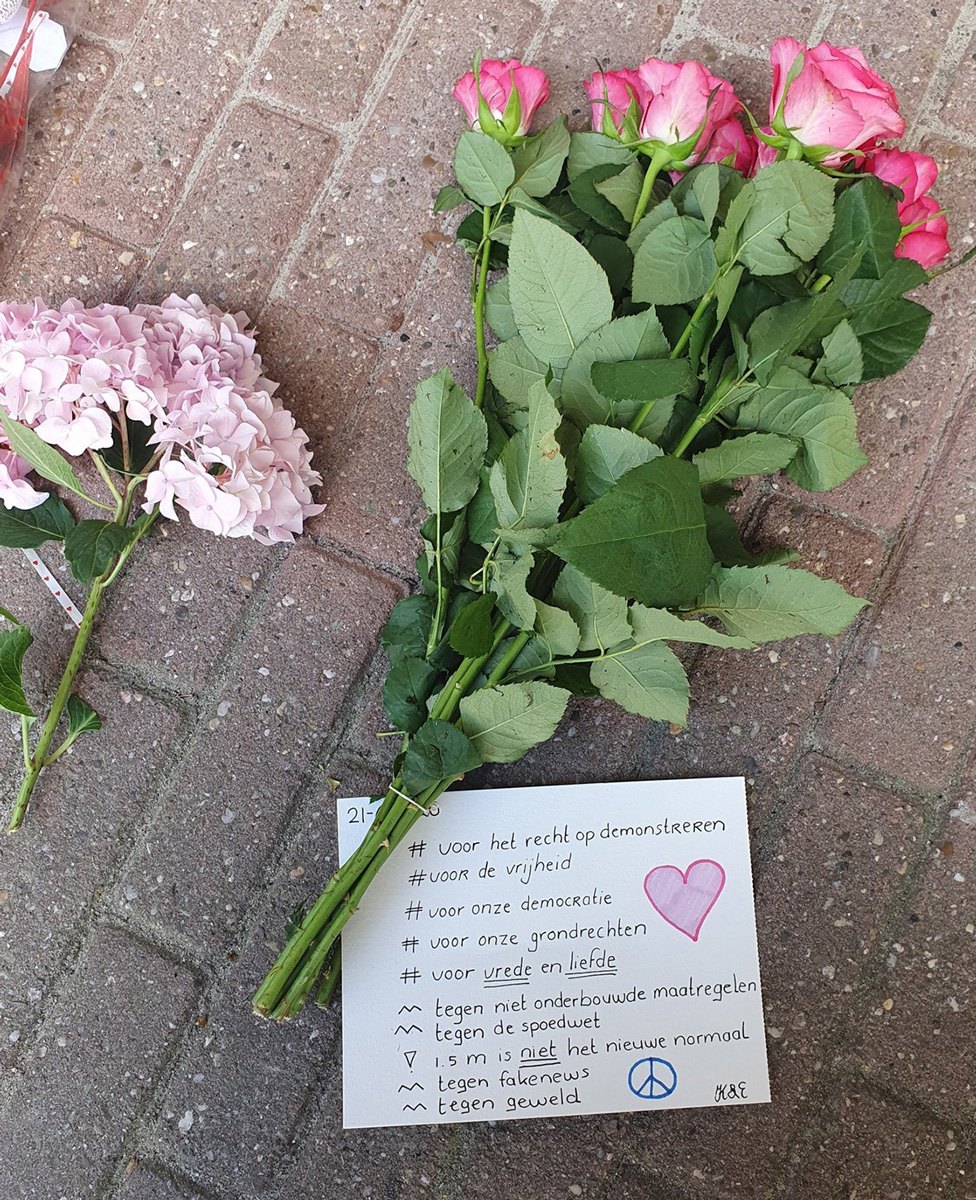 21-
# voor het recht op demonstreren
# voor de vrijheid
# voor onze democratie
# voor onze grondrechten
# voor vrede en liefde
~ tegen niet onderbouwde maatregelen
~ tegen de spoedwet
▽ 1.5 m is niet het nieuwe normaal
~ tegen fakenews
~ tegen geweld
K&E